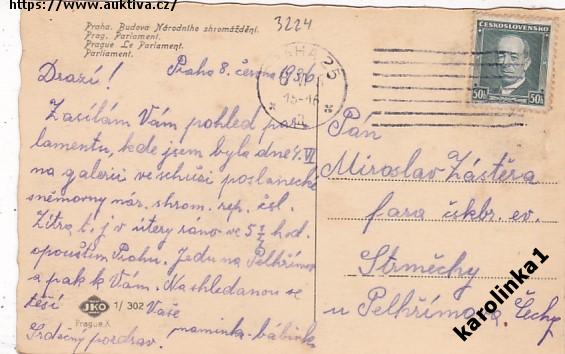 https://www.auktiva.cz/
Praha. Budova Národního shromáždění.
Prag. Parlament.
Prague Le Parlament.
Parliament.
3224
PRAHA 25
15-16
ČESKOSLOVENSKO
50h 50h
Praha 8. června 1936
Drazí!
Zasílám Vám pohled par
lamentu, kde jsem byla dne 4. VI
na galerii ve schůzi poslanecké
sněmovny nár. shrom. rep. čsl.
Zítra t. j. v úterý ráno ve 5 1/2 hod.
opouštím Prahu. Jedu na Pelhřimov
a pak k Vám. Na shledanou se
těší Vaše
maminka - babinka
Srdečný pozdrav.
JKO 1/302
Prague X
Pán
Miroslav Zástěra
fara čskbr. ev.
Strměchy
u Pelhřimova Čechy
karolinka1